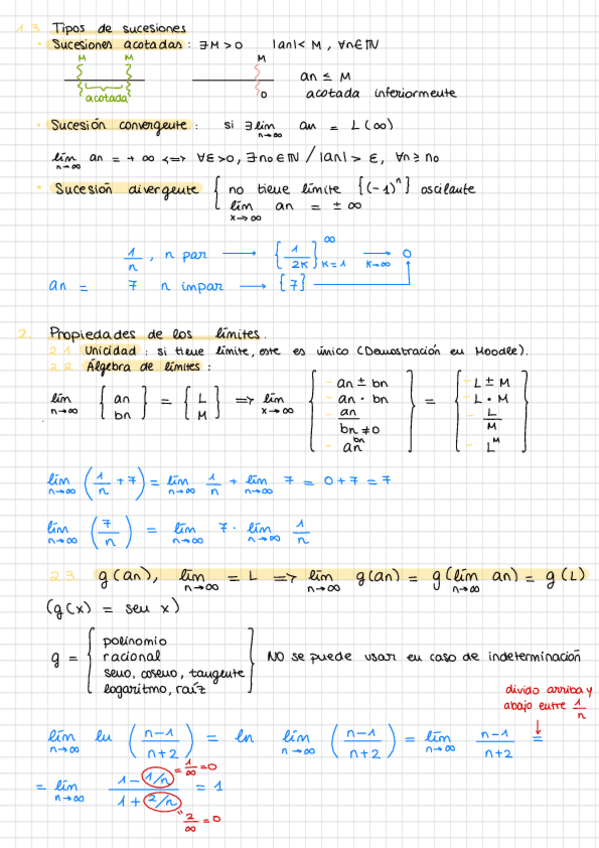 1.3 Tipos de sucesiones
· Sucesiones acotadas : ∃M > 0 |an| < M, ∀n∈ℕ
M M M
an ≤ M
acotada
0 acotada inferiormente
· Sucesión convergente : si ∃ lím n→∞ an = L (∞)
lím n→∞ an = +∞ <=> ∀ε>0, ∃n0∈ℕ / |an| > ε, ∀n ≥ n0
· Sucesión divergente { no tiene límite {(-1)^n} oscilante
lím x→∞ an = ±∞
an = 1/n, n par → {1/2K}^∞ K=1 → K→∞ 0
7 n impar → {7}
2. Propiedades de los límites.
2.1 Unicidad : si tiene límite, este es único (Demostración en Moodle).
2.2 Álgebra de límites :
lím n→∞ { an bn } = { L M } => lím x→∞ { - an ± bn - an · bn - an/bn≠0 - an^bn } = { - L ± M - L · M - L/M - L^M }
lím n→∞ (1/n + 7) = lím n→∞ 1/n + lím n→∞ 7 = 0 + 7 = 7
lím n→∞ (7/n) = lím n→∞ 7 · lím n→∞ 1/n
2.3. g(an), lím n→∞ = L => lím n→∞ g(an) = g(lím n→∞ an) = g(L)
(g(x) = sen x)
g = { polinomio
racional
seno, coseno, tangente
logaritmo, raíz } NO se puede usar en caso de indeterminación
divido arriba y
abajo entre 1/n
lím n→∞ ln (n-1/n+2) = ln lím n→∞ (n-1/n+2) = lím n→∞ n-1/n+2 =
= lím n→∞ 1-1/n / 1+2/n = 1
= 1/∞ = 0
" 2/∞ = 0